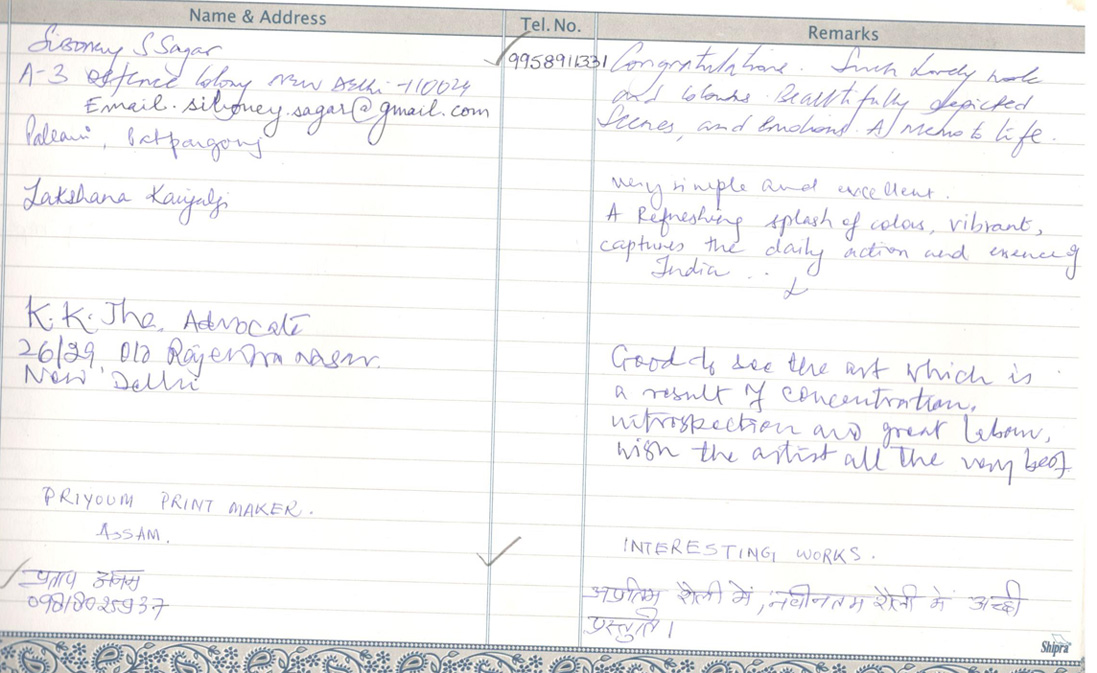 Name & Address
Tel. No.
Remarks
Siboney S Sagar
A-3 Defence Colony New Delhi -110024
Email. siboney.sagar@gmail.com
9958911331
Congratulations. Such lovely work
and colours. Beautifully depicted
Scenes, and Emotions. A to life.
Lakshana
very simple and excellent.
A Refreshing splash of colors, vibrant,
captures the daily action and essence of
India ..
K. K. Jha, Advocate
26/29 Old Rajendra Nagar.
New Delhi
Good to see the art which is
a result of concentration,
introspection and great labour,
wish the artist all the very best
PRIYOUM PRINT MAKER.
ASSAM.
INTERESTING WORKS.
प्रताप
09818025937
अप्रतिम शैली में, नवीनतम शैली में अच्छी
प्रस्तुति।
Shipra